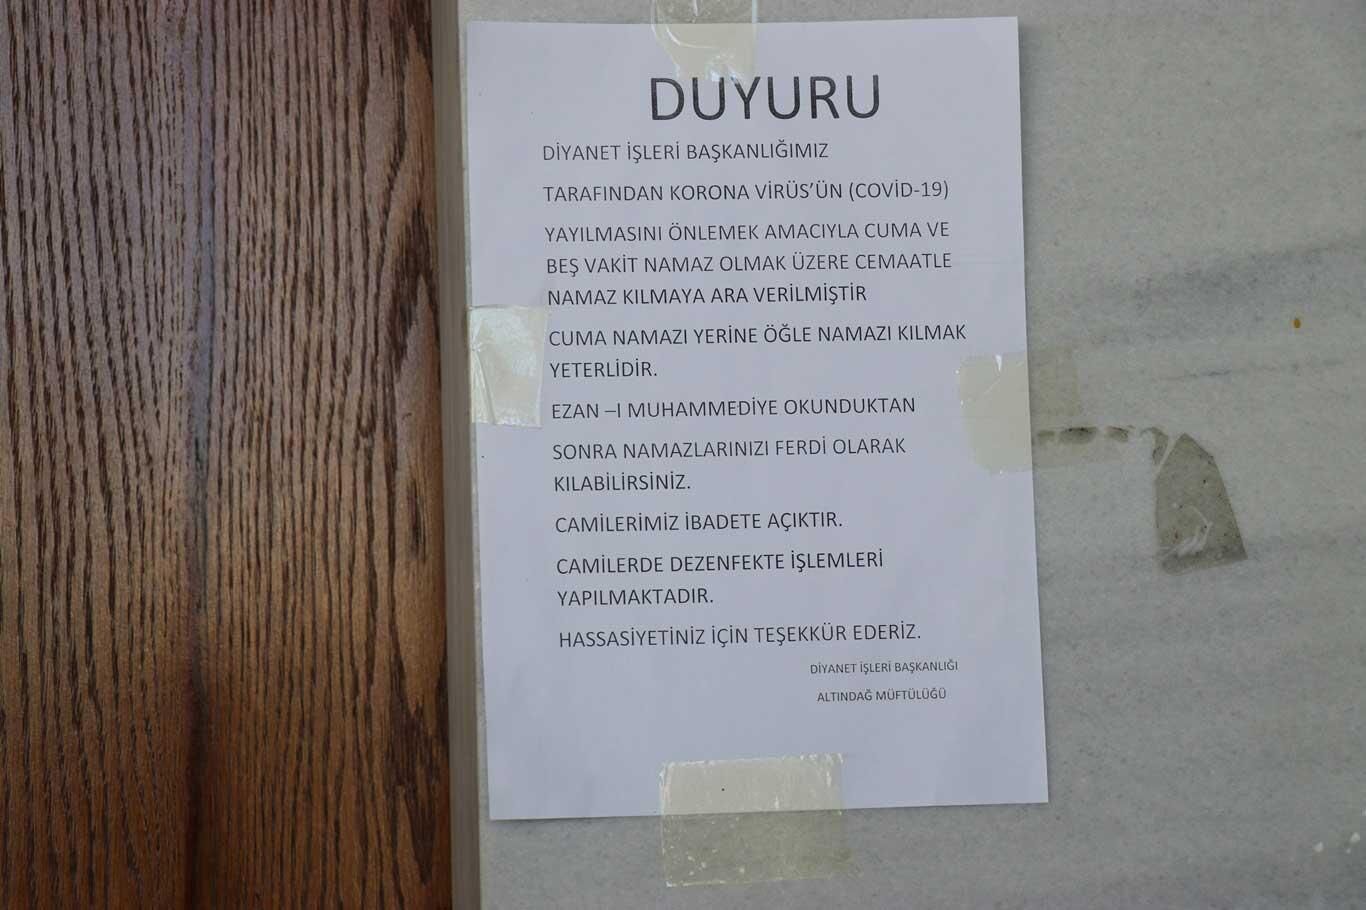 DUYURU
DİYANET İŞLERİ BAŞKANLIĞIMIZ
TARAFINDAN KORONA VİRÜS'ÜN (COVİD-19)
YAYILMASINI ÖNLEMEK AMACIYLA CUMA VE
BEŞ VAKİT NAMAZ OLMAK ÜZERE CEMAATLE
NAMAZ KILMAYA ARA VERİLMİŞTİR
CUMA NAMAZI YERİNE ÖĞLE NAMAZI KILMAK
YETERLİDİR.
EZAN –I MUHAMMEDİYE OKUNDUKTAN
SONRA NAMAZLARINIZI FERDİ OLARAK
KILABİLİRSİNİZ.
CAMİLERİMİZ İBADETE AÇIKTIR.
CAMİLERDE DEZENFEKTE İŞLEMLERİ
YAPILMAKTADIR.
HASSASİYETİNİZ İÇİN TEŞEKKÜR EDERİZ.
DİYANET İŞLERİ BAŞKANLIĞI
ALTINDAĞ MÜFTÜLÜĞÜ